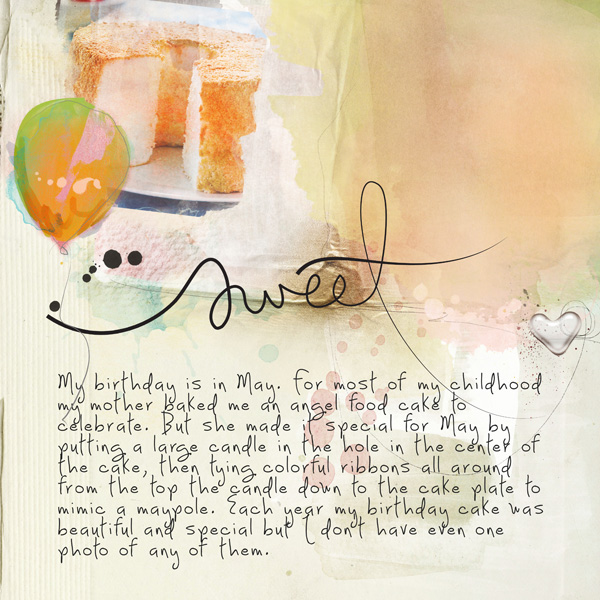 sweet
My birthday is in May. For most of my childhood
my mother baked me an angel food cake to
celebrate. But she made it special for May by
putting a large candle in the hole in the center of
the cake, then tying colorful ribbons all around
from the top the candle down to the cake plate to
mimic a maypole. Each year my birthday cake was
beautiful and special but I don't have even one
photo of any of them.